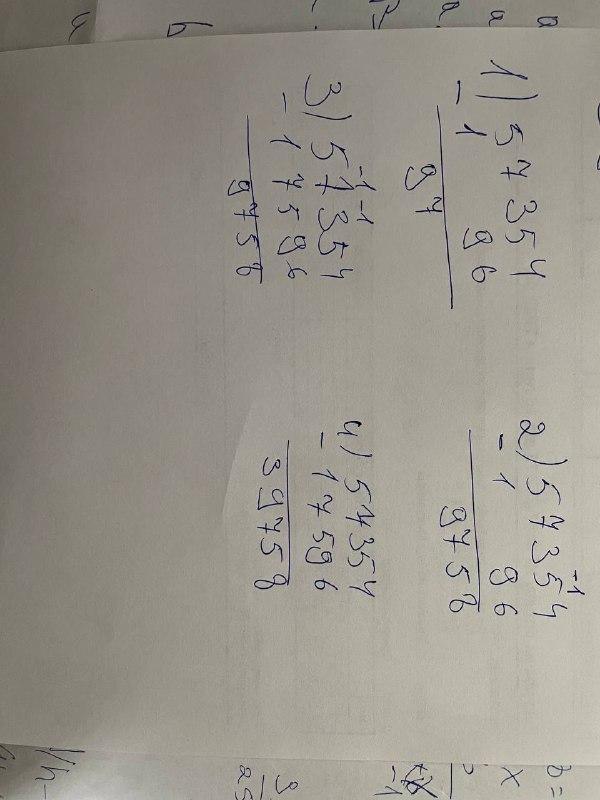 1) 57354
- 1 96
97
2) -1
57354
- 1 96
9758
3) -1 -1
57354
- 17596
9758
4) 57354
- 17596
39758